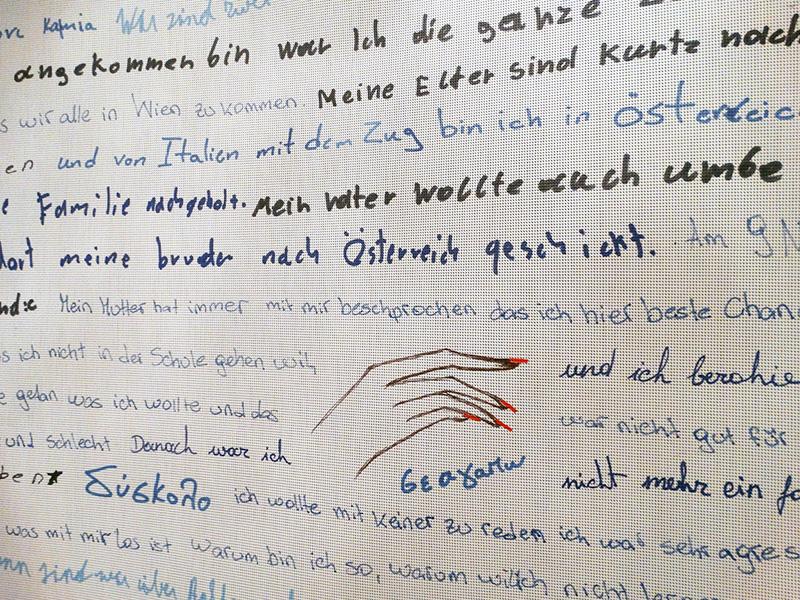 Katnia Wir sind zwei
angekommen bin war Ich die ganze
wir alle in Wien zu kommen. Meine Elter sind Kurtz nach
en und von Italien mit dem Zug bin ich in Österreic
e Familie nachgeholt. Mein vater wollte auch umbe
meine bruder nach Österreich geschickt. Am 9
Mein Mutter hat immer mit mir beschprochen das ich hier beste Chan
s ich nicht in der Schule gehen will, und ich
e getan was ich wollte und das war nicht gut für
und schlecht Danach war ich nicht mehr ein
ben δύσκολο ich wollte mit keiner zu reden ich war sehr agres
was mit mir los ist warum bin ich so, warum will ich nicht